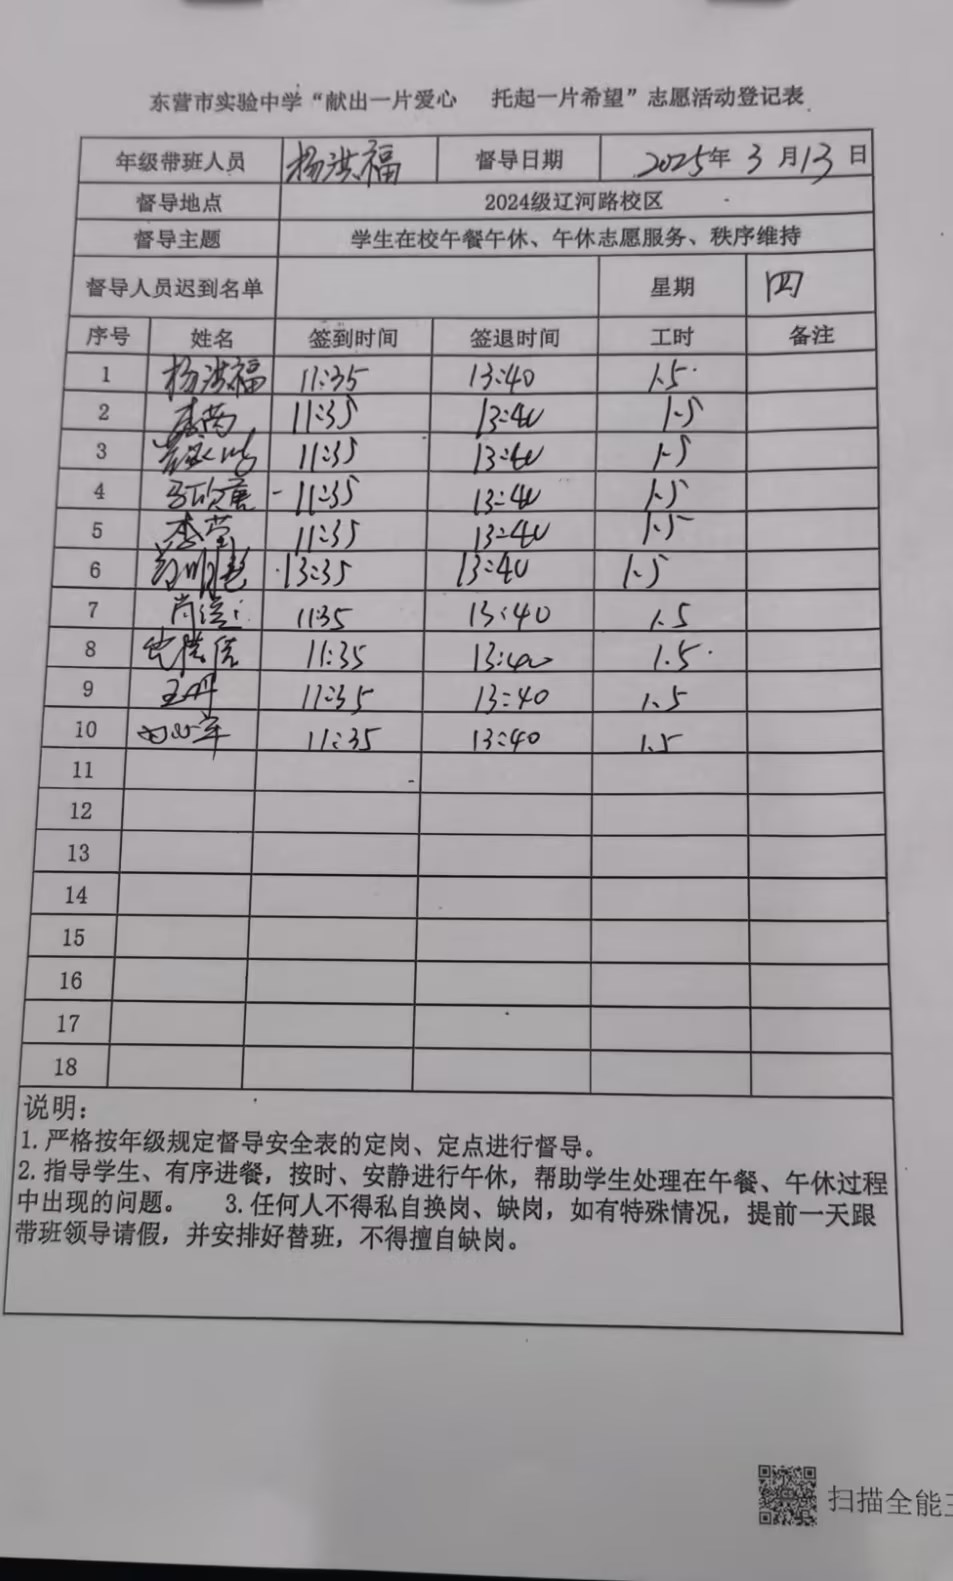 东营市实验中学“献出一片爱心 托起一片希望”志愿活动登记表
年级带班人员 杨洪福 督导日期 2025年3月13日
督导地点 2024级辽河路校区
督导主题 学生在校午餐午休、午休志愿服务、秩序维持
督导人员迟到名单 星期 四
序号 姓名 签到时间 签退时间 工时 备注
1 杨洪福 11:35 13:40 1.5
2 11:35 13:40 1.5
3 11:35 13:40 1.5
4 11:35 13:40 1.5
5 李莹 11:35 13:40 1.5
6 13:35 13:40 1.5
7 11:35 13:40 1.5
8 11:35 13:40 1.5
9 王丹 11:35 13:40 1.5
10 11:35 13:40 1.5
11
12
13
14
15
16
17
18
说明：
1.严格按年级规定督导安全表的定岗、定点进行督导。
2.指导学生、有序进餐，按时、安静进行午休，帮助学生处理在午餐、午休过程
中出现的问题。 3.任何人不得私自换岗、缺岗，如有特殊情况，提前一天跟
带班领导请假，并安排好替班，不得擅自缺岗。
扫描全能王